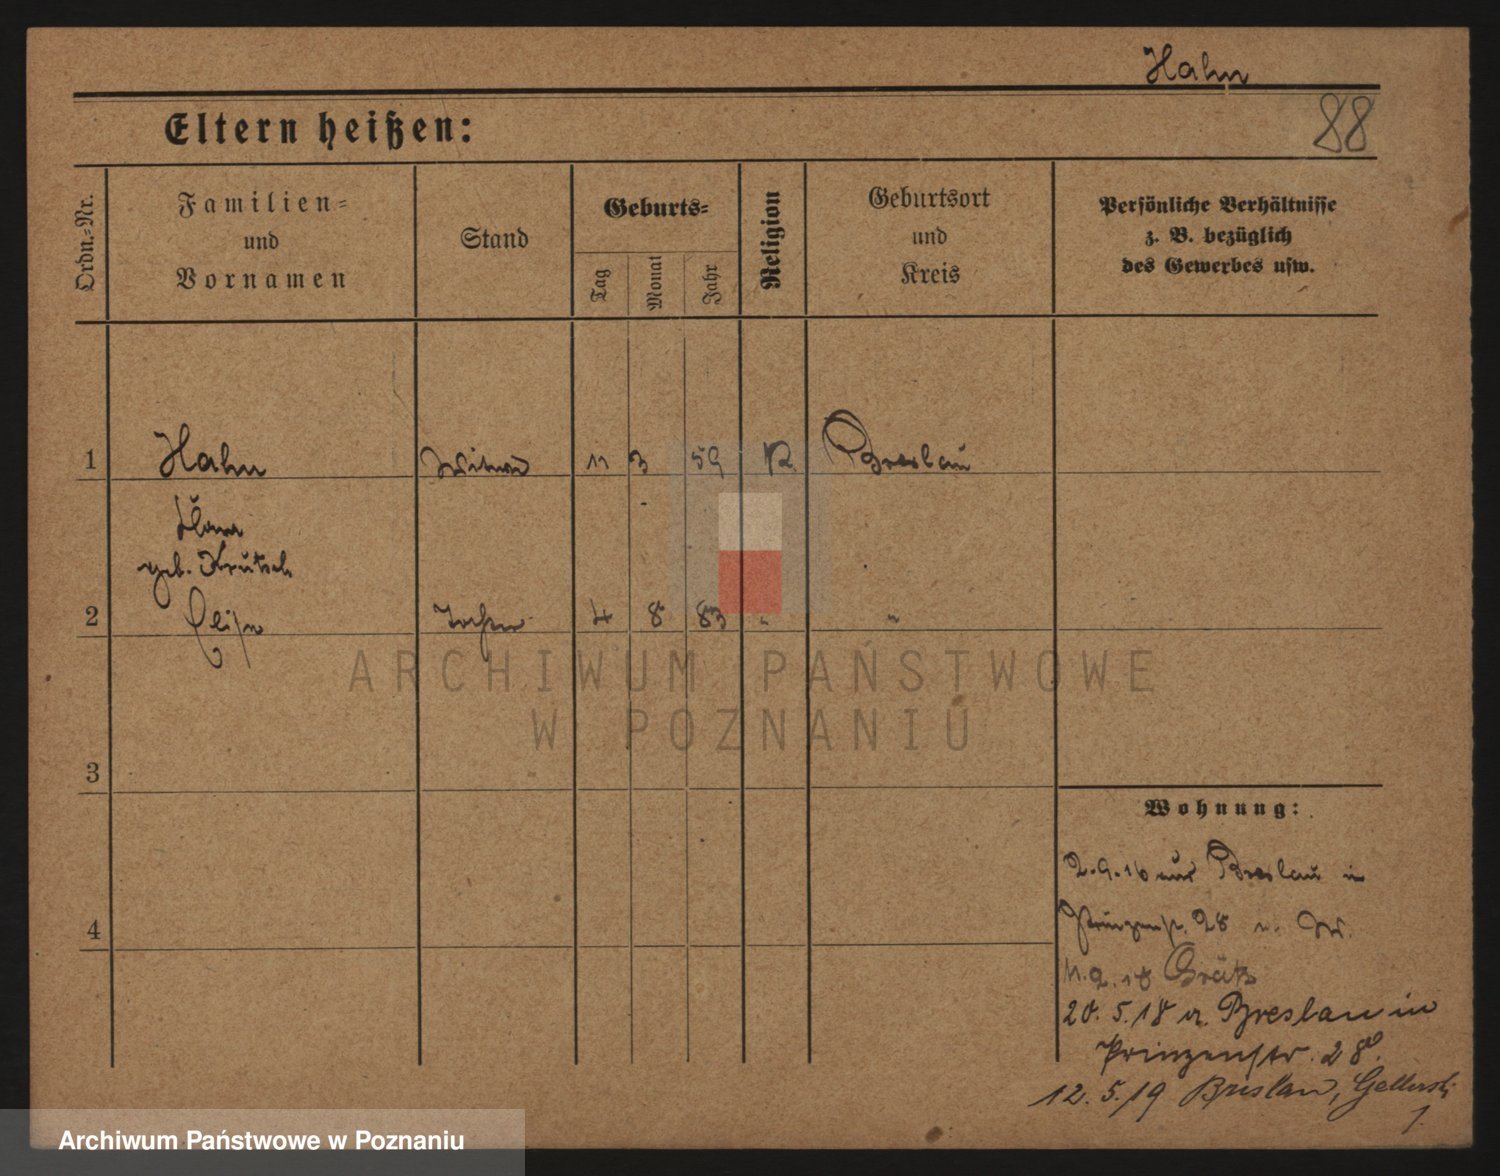 Hahn
88
Eltern heißen:
Ordn.-Nr.
Familien-
und
Vornamen
Stand
Geburts-
Tag
Monat
Jahr
Religion
Geburtsort
und
Kreis
Persönliche Verhältnisse
z. B. bezüglich
des Gewerbes usw.
1 Hahn Witwe 11 3 59 K. Breslau
geb. Krutsch
2 Elise Tochter 4 8 83 " "
ARCHIWUM PAŃSTWOWE
W POZNANIU
3
Wohnung:
2.9.16 aus Breslau in
Prinzenstr. 28
4
11.2.18 Grätz
20.5.18 v. Breslau in
Prinzenstr. 28
12.5.19 Breslau, Gellertstr.
1.
Archiwum Państwowe w Poznaniu